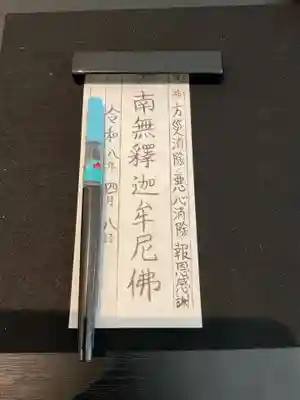 方災消除 悪心消除 報恩感謝
南無釋迦牟尼佛
令和八年 四月 八日